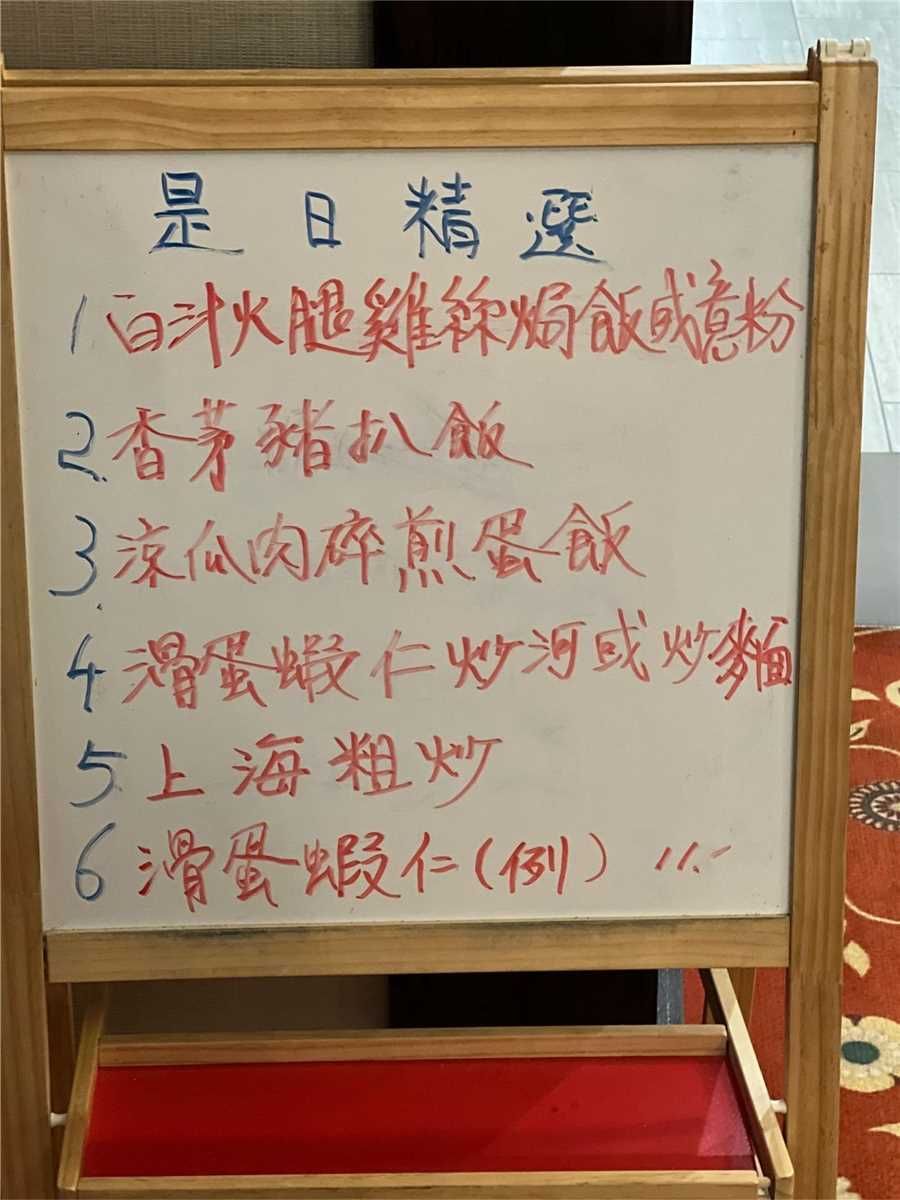 是日精選
1 白汁火腿雞絲焗飯或意粉
2. 香茅豬扒飯
3. 涼瓜肉碎煎蛋飯
4 滑蛋蝦仁炒河或炒麵
5 上海粗炒
6 滑蛋蝦仁(例) 11.-